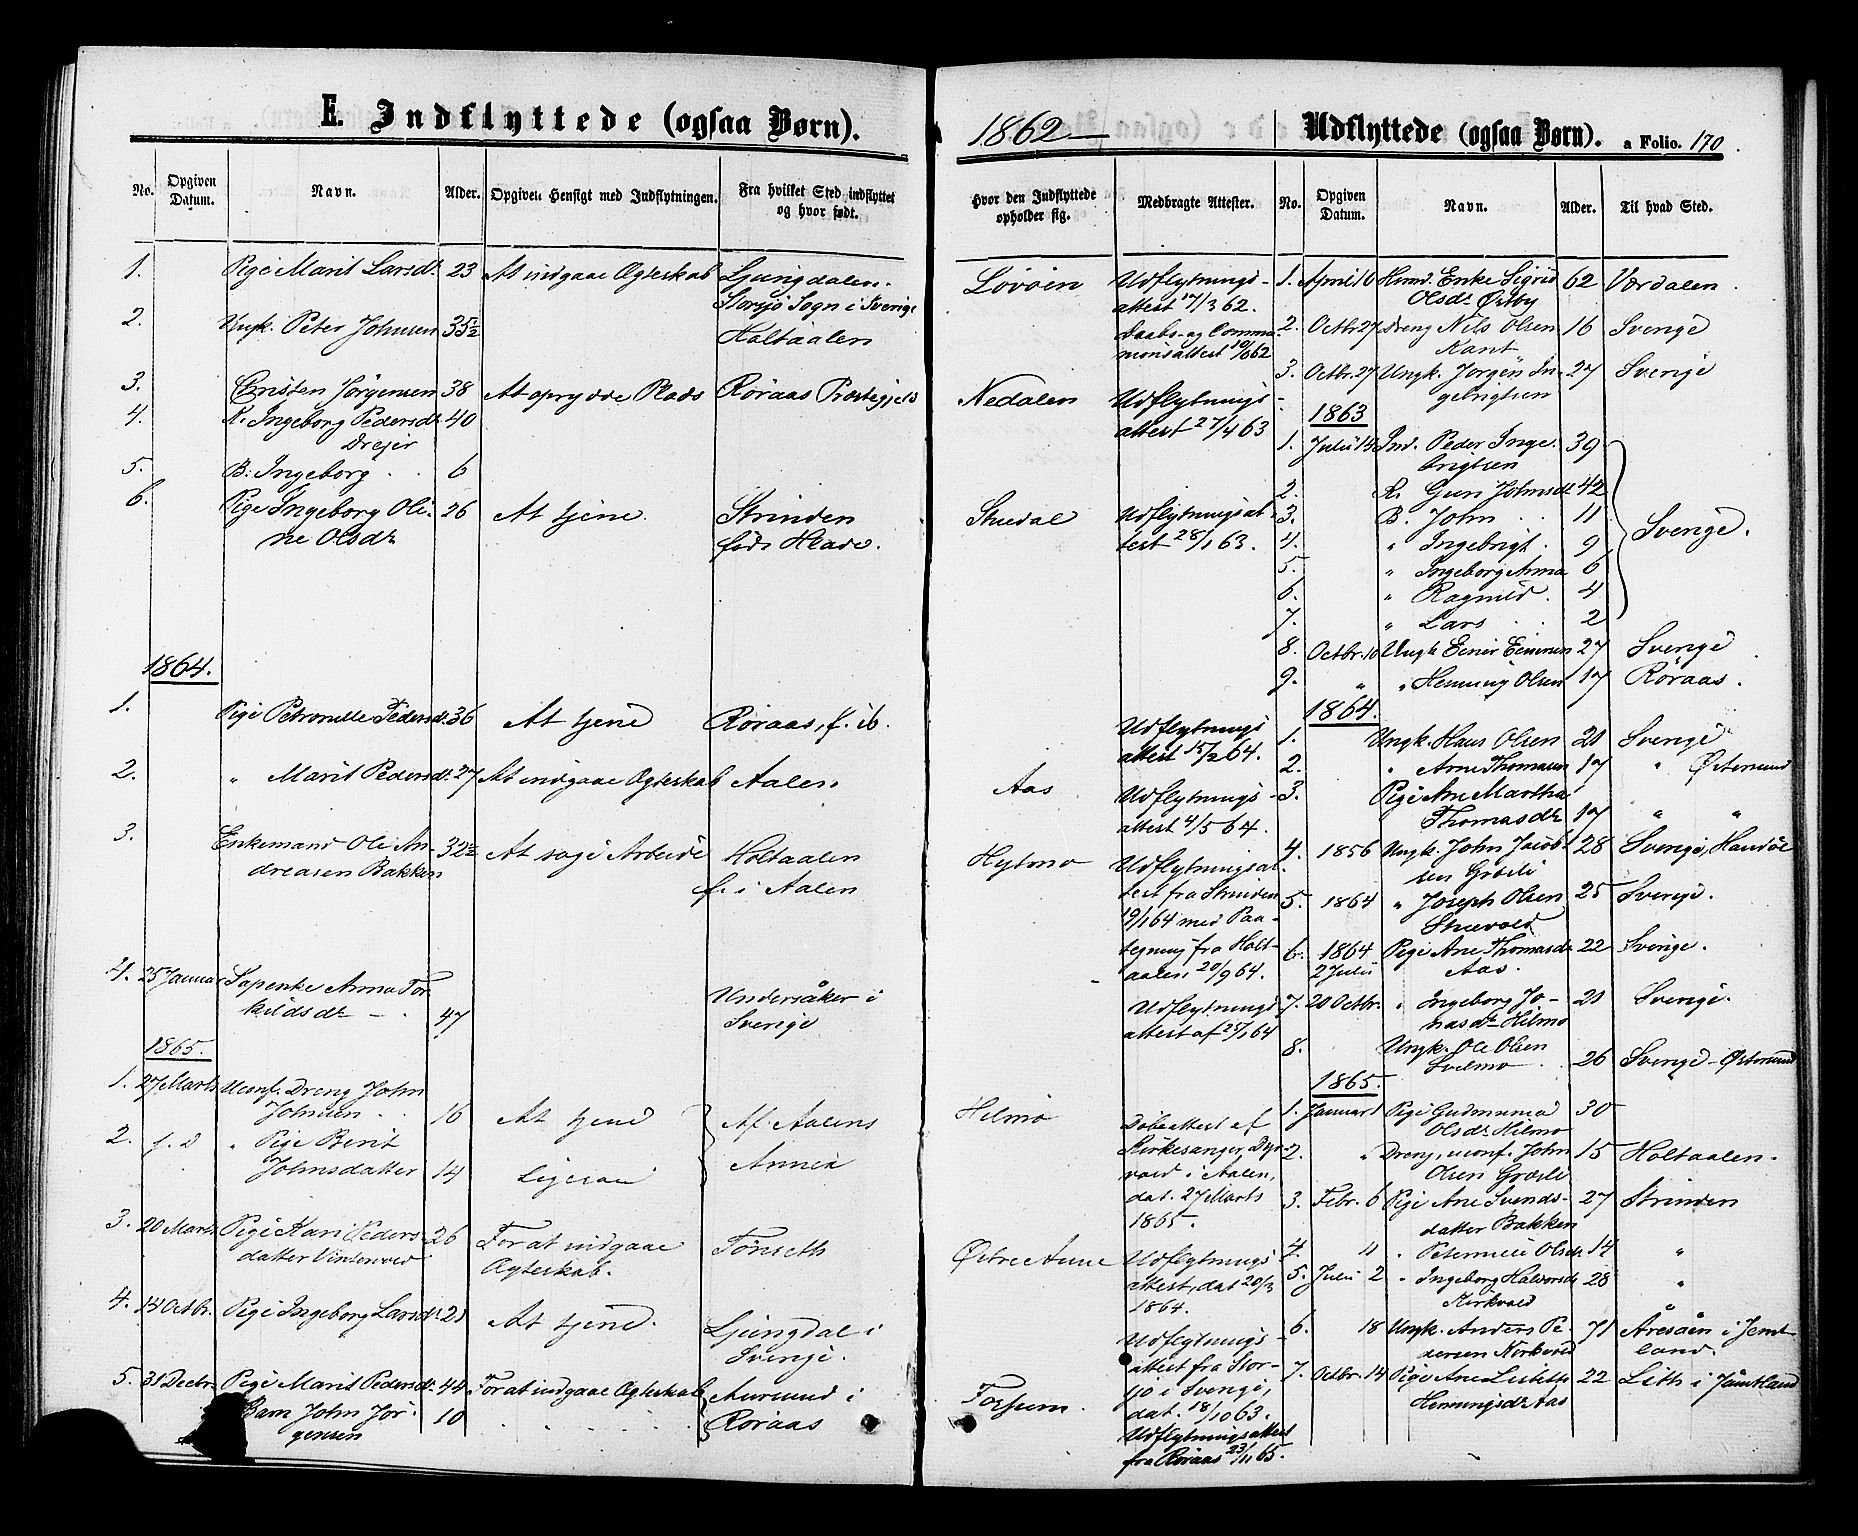 E. Indflyttede (ogsaa Børn).
No.
Opgiven
Datum.
Navn.
Alder.
Opgiven Hensigt med Indflytningen.
Fra hvilket Sted indflyttet
og hvor født.
1. Pige Marit Larsdr 23 At indgaae Ægteskab Ljungdalen.
Storsjö Sogn i Sverige
2. Ungk. Peter Johnsen 35½ Holtaalen
3. Christen Jørgensen 38 At oprydde Plads Røraas Præstegjeld
4. K. Ingeborg Pedersdr 40
Drejer
5. B. Ingeborg 6
6. Pige Ingeborg Oli- 26 At tjene. Strinden
ne Olsdr født Hlade.
1864.
1. Pige Petronelle Pedersdr 36 At tjene Røraas, f. ib.
2. " Marit Pedersdr 27 At indgaae Ægteskab Aalen
3. Enkemand Ole An- 32½ At søge Arbeide Holtaalen
dreasen Bakken f. i Aalen
4. 25 Januar Lapenke Anna Tor-
kildsdr 47 Undersåker i
Sverige
1865.
1. 27 Marts Uconf. Dreng John
Johnsen 16 At tjene Af Aalens
2. f. D " Pige Berit
Johnsdatter 14 Ligesaa Annex
3. 20 Marts Pige Kari Peders- 26 For at indgaae Tønseth
datter Vintervold Ægteskab.
4. 14 Octbr. Pige Ingeborg Larsdr 21 At tjene. Ljungdal i
Sverige.
5. 31 Decbr. Pige Marit Pedersdr 44 For at indgaae Ægteskab Aursund i
Barn John Jør- 10 Røraas
gensen
1862 —
Udflyttede (ogsaa Børn). a Folio. 170.
Hvor den Indflyttede
opholder sig.
Medbragte Attester.
No.
Opgiven
Datum.
Navn.
Alder.
Til hvad Sted.
Løvøen Udflytnings-
attest 17/3 62.
Daabs- og Commu-
nionsattest 10/6 62
Nedalen Udflytnings-
attest 27/4 63
Stuedal Udflytningsat-
test 28/1 63.
Udflytnings
attest 15/2 64.
Aas Udflytnings-
attest 4/5 64.
Hytmo Udflytningsat-
test fra Strinden
19/1 64 med Paa-
tegning fra Holt-
aalen 20/9 64.
Udflytnings
attest af 25/1 64
Hilmo Døbeattest af
Kirkesanger Dyr-
vold i Aalen,
dat. 27 Marts
1865.
Østre Aune Udflytnings
attest, dat 20/3
1864.
Udflytnings-
attest fra Stor-
sjo i Sverige,
dat. 18/10 63.
Fossum. Udflytningsattest
fra Røraas 23/11 65.
1. April 10 Huusmd. Enke Sigrid 62 Værdalen.
Olsdr Østby
2. Octbr. 27 Dreng Nils Olsen 16 Sverige
Kant
3. Octbr. 27 Ungk. Jørgen In- 27 Sverige
gebrigtsen
1863
1. Julii 14 Ind. Peder Inge- 39
brigtsen
2. K. Guri Johnsdr 42
3. B. John 11 Sverige.
4. " Ingebrigt. 9
5. " Ingeborg Anna 6
6. " Ragnild. 4
7. " Lars 2
8. Octbr. 10 Ungk Einer Einersen 27 Sverige
9. " " Henning Olsen 17 Røraas.
1864.
1. Ungk. Hans Olsen 21 Sverige
2. " Arne Thomasen 17 " Østersund
3. Pige Ane Martha
Thomasdr 17 " "
4. 1856 Ungk. John Jacob- 28 Sverige, Handøl
sen Græsli
5. 1864 " Joseph Olsen 25 Sverige.
Stuevold
6. 1864 Pige Ane Thomasdr 22 Sverige.
2 Julii Aas.
7. 20 Octbr. " Ingeborg Jo- 21 Sverige.
nasdr Hilmo
8. Ungk. Ole Olsen
Svelmo 26 Sverige - Østersund
1865.
1. Januar 1 Pige Gudmunna 30
Olsdr Hilmo
2. " Dreng, uconf. John 15 Holtaalen.
Olsen Græsli
3. Febr. 6 Pige Ane Svends- 27 Strinden
datter Bakken
4. 11 " Petermine Olsdr 14 "
5. Julii 2 " Ingeborg Halvorsdr 28 "
Kirkvold
6. 18 Ungk. Anders Pe- 71 Åresåen i Jemt-
dersen Kirkvold land.
7. Octbr. 14 Pige Ane Lisbeth 22 Lith i Jämtland
Henningsdr Aas